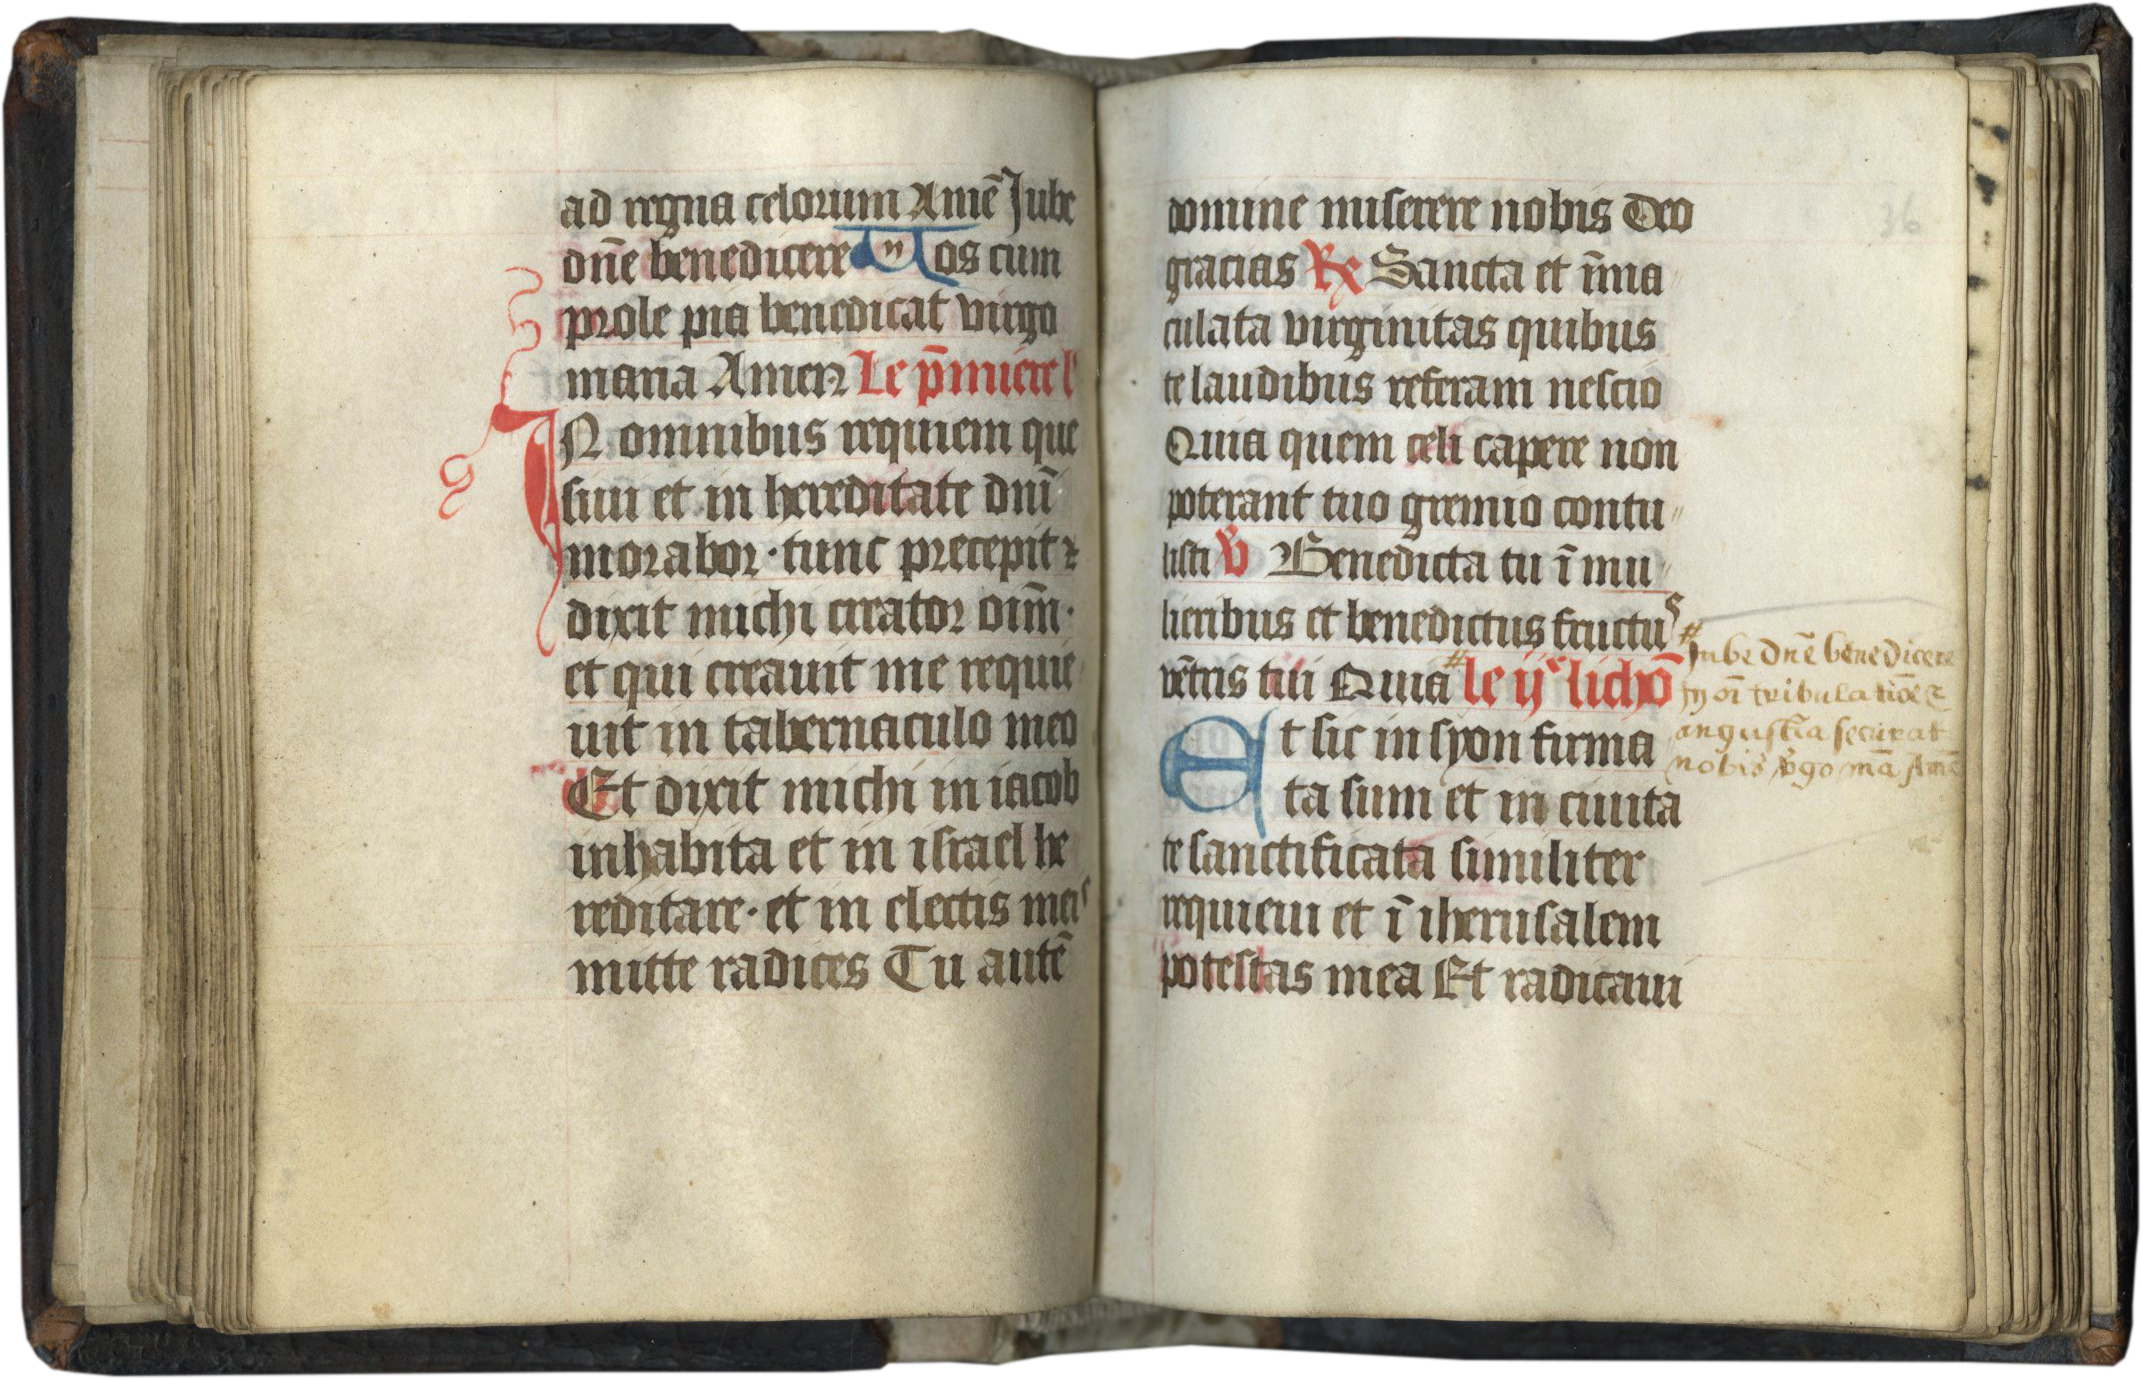 ad regna celorum Amē Jube
dn̄e benedicere Nos cum
prole pia benedicat virgo
maria Amen Le p̄miere l'
IN omnibus requiem que
siui et in hereditate dnī
morabor · tunc precepit ⁊
dixit michi creator oīm ·
et qui creauit me requie
uit in tabernaculo meo
Et dixit michi in iacob
inhabita et in israel he
reditare · et in electis meis
mitte radices Tu autē
domine miserere nobis Deo
gracias ℞ Sancta et īma
culata virginitas quibus
te laudibus referam nescio
Quia quem celi capere non
poterant tuo gremio contu
listi ℣ Benedicta tu ī mu
lieribus et benedictus fructus
vētris tui Quia # le ijᵉ lichō
Et sic in syon firma
ta sum et in ciuita
te sanctificata similiter
requieui et ī iherusalem
potestas mea Et radicaui
# Jube dn̄e benedicere
Jn oī tribulatiōe ⁊
angustia securat
nobis v̄go mā Amē
36